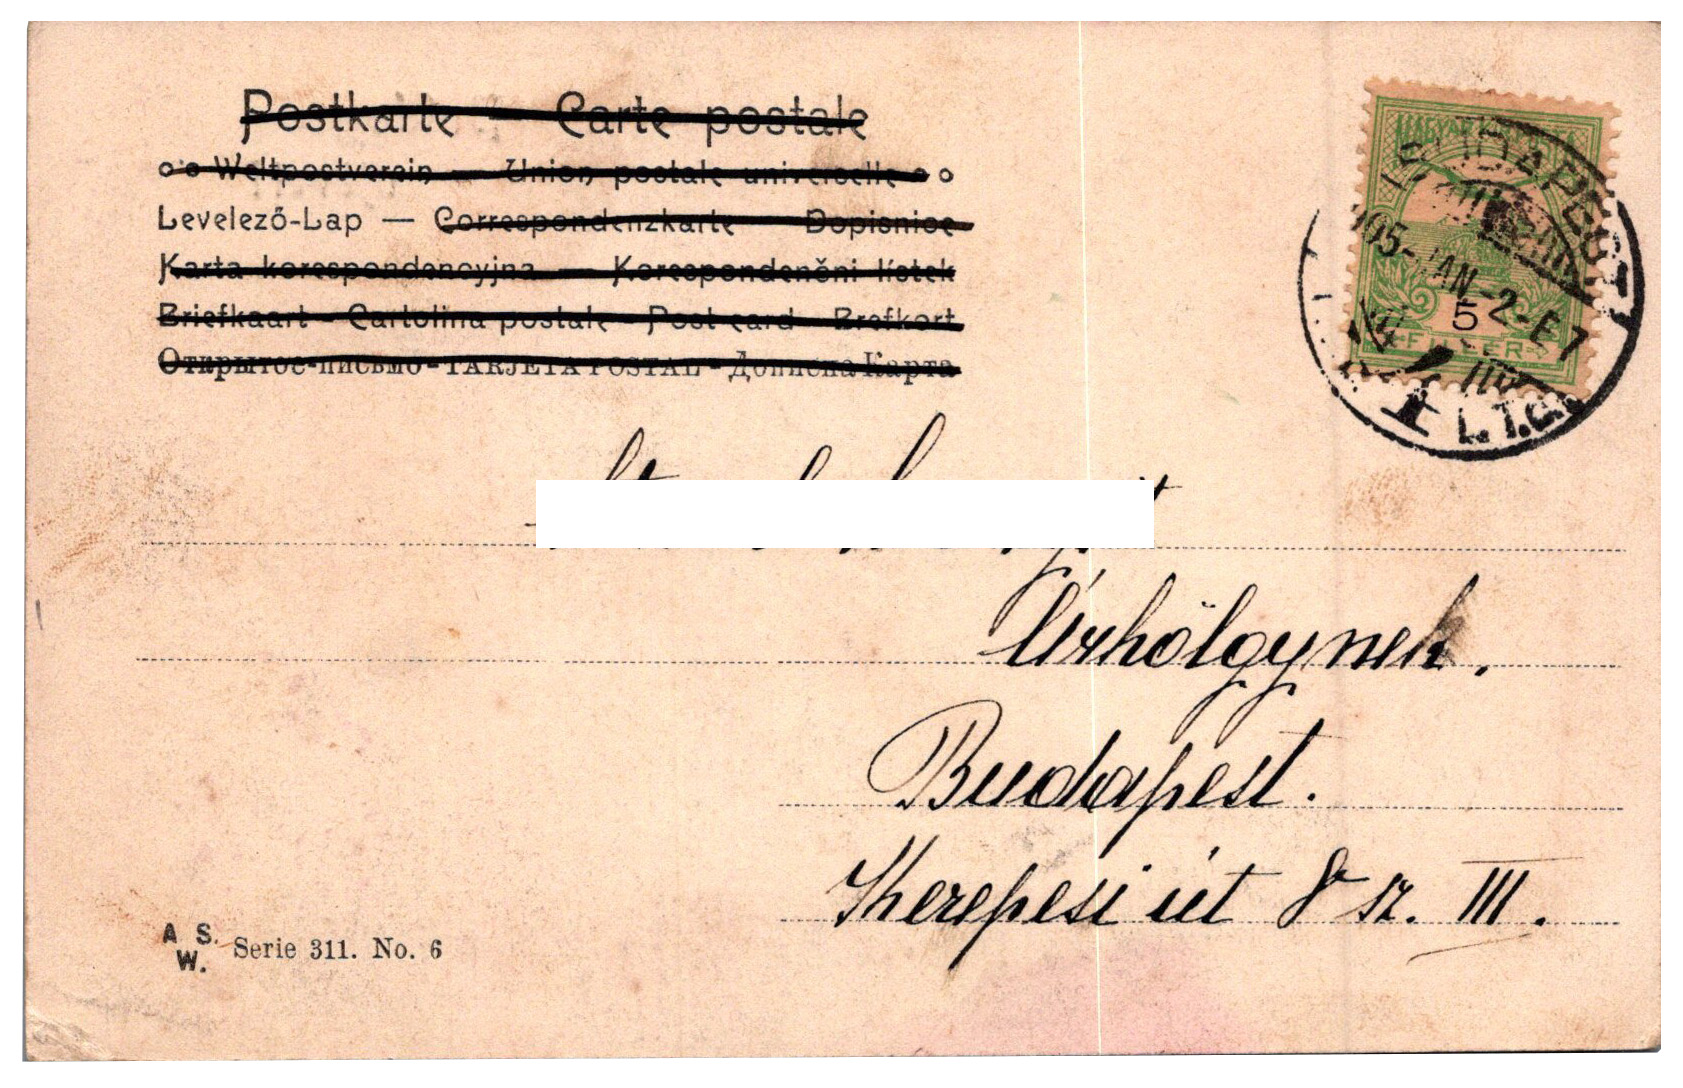 Postkarte — Carte postale
Weltpostverein — Union postale universelle
Levelező-Lap — Correspondenzkarte — Dopisnice
Karta korespondencyjna — Korespondenční lístek
Briefkaart - Cartolina postale - Post card - Brefkort
Открытое-письмо - TARJETA POSTAL - Дописна Карта
MAGYAR
BUDAPEST
905-JAN-2-E7
5
FILLÉR
Úrhölgynek.
Budapest.
Kerepesi út 8 sz. III.
A S.
W. Serie 311. No. 6